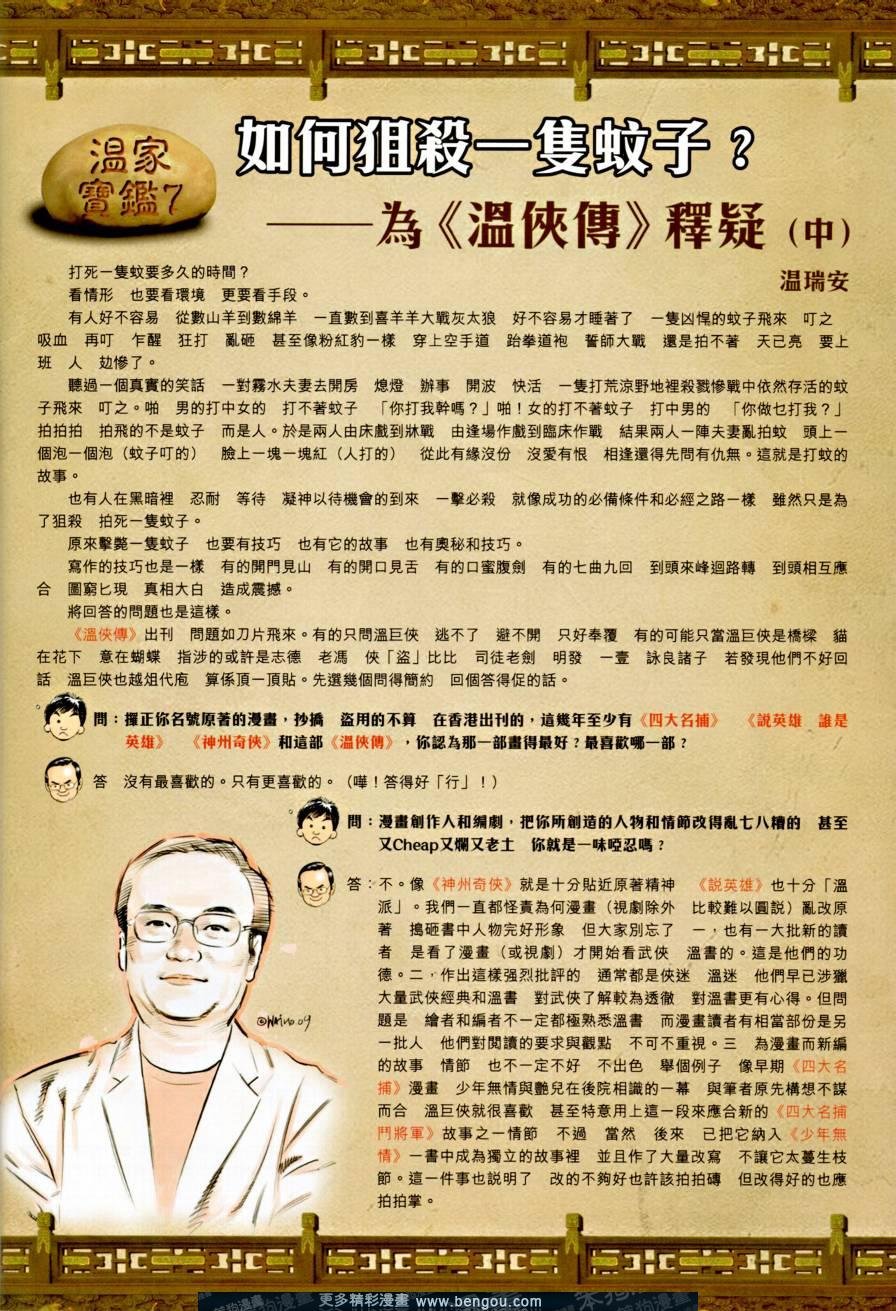 温家
寶鑑7
如何狙殺一隻蚊子？
——為《溫俠傳》釋疑（中）
温瑞安
打死一隻蚊要多久的時間？
看情形　也要看環境　更要看手段。
有人好不容易　從數山羊到數綿羊　一直數到喜羊羊大戰灰太狼　好不容易才睡著了　一隻凶悍的蚊子飛來　叮之
吸血　再叮　乍醒　狂打　亂砸　甚至像粉紅豹一樣　穿上空手道　跆拳道袍　誓師大戰　還是拍不著　天已亮　要上
班　人　攰慘了。
聽過一個真實的笑話　一對霧水夫妻去開房　熄燈　辦事　開波　快活　一隻打荒涼野地裡殺戮慘戰中依然存活的蚊
子飛來　叮之。啪　男的打中女的　打不著蚊子　「你打我幹嗎？」啪！女的打不著蚊子　打中男的　「你做乜打我？」
拍拍拍　拍飛的不是蚊子　而是人。於是兩人由床戲到牀戰　由逢場作戲到臨床作戰　結果兩人一陣夫妻亂拍蚊　頭上一
個泡一個泡（蚊子叮的）　臉上一塊一塊紅（人打的）　從此有緣沒份　沒愛有恨　相逢還得先問有仇無。這就是打蚊的
故事。
也有人在黑暗裡　忍耐　等待　凝神以待機會的到來　一擊必殺　就像成功的必備條件和必經之路一樣　雖然只是為
了狙殺　拍死一隻蚊子。
原來擊斃一隻蚊子　也要有技巧　也有它的故事　也有奧秘和技巧。
寫作的技巧也是一樣　有的開門見山　有的開口見舌　有的口蜜腹劍　有的七曲九回　到頭來峰迴路轉　到頭相互應
合　圖窮匕現　真相大白　造成震撼。
將回答的問題也是這樣。
《溫俠傳》出刊　問題如刀片飛來。有的只問溫巨俠　逃不了　避不開　只好奉覆　有的可能只當溫巨俠是橋樑　貓
在花下　意在蝴蝶　指涉的或許是志德　老馮　俠「盜」比比　司徒老劍　明發　一壹　詠良諸子　若發現他們不好回
話　溫巨俠也越俎代庖　算係頂一頂貼。先選幾個問得簡約　回個答得促的話。
問：攞正你名號原著的漫畫，抄撟　盜用的不算　在香港出刊的，這幾年至少有《四大名捕》　《說英雄　誰是
英雄》　《神州奇俠》和這部《溫俠傳》，你認為那一部畫得最好？最喜歡哪一部？
答　沒有最喜歡的。只有更喜歡的。（嘩！答得好「行」！）
問：漫畫創作人和編劇，把你所創造的人物和情節改得亂七八糟的　甚至
又Cheap又爛又老土　你就是一味啞忍嗎？
答：不。像《神州奇俠》就是十分貼近原著精神　《說英雄》也十分「溫
派」。我們一直都怪責為何漫畫（視劇除外　比較難以圓說）亂改原
著　搗砸書中人物完好形象　但大家別忘了　一，也有一大批新的讀
者　是看了漫畫（或視劇）才開始看武俠　溫書的。這是他們的功
德。二，作出這樣强烈批評的　通常都是俠迷　溫迷　他們早已涉獵
大量武俠經典和溫書　對武俠了解較為透徹　對溫書更有心得。但問
題是　繪者和編者不一定都極熟悉溫書　而漫畫讀者有相當部份是另
一批人　他們對閱讀的要求與觀點　不可不重視。三　為漫畫而新編
的故事　情節　也不一定不好　不出色　舉個例子　像早期《四大名
捕》漫畫　少年無情與艷兒在後院相識的一幕　與筆者原先構想不謀
而合　溫巨俠就很喜歡　甚至特意用上這一段來應合新的《四大名捕
鬥將軍》故事之一情節　不過　當然　後來　已把它納入《少年無
情》一書中成為獨立的故事裡　並且作了大量改寫　不讓它太蔓生枝
節。這一件事也說明了　改的不夠好也許該拍拍磚　但改得好的也應
拍拍掌。
更多精彩漫畫 www.bengou.com